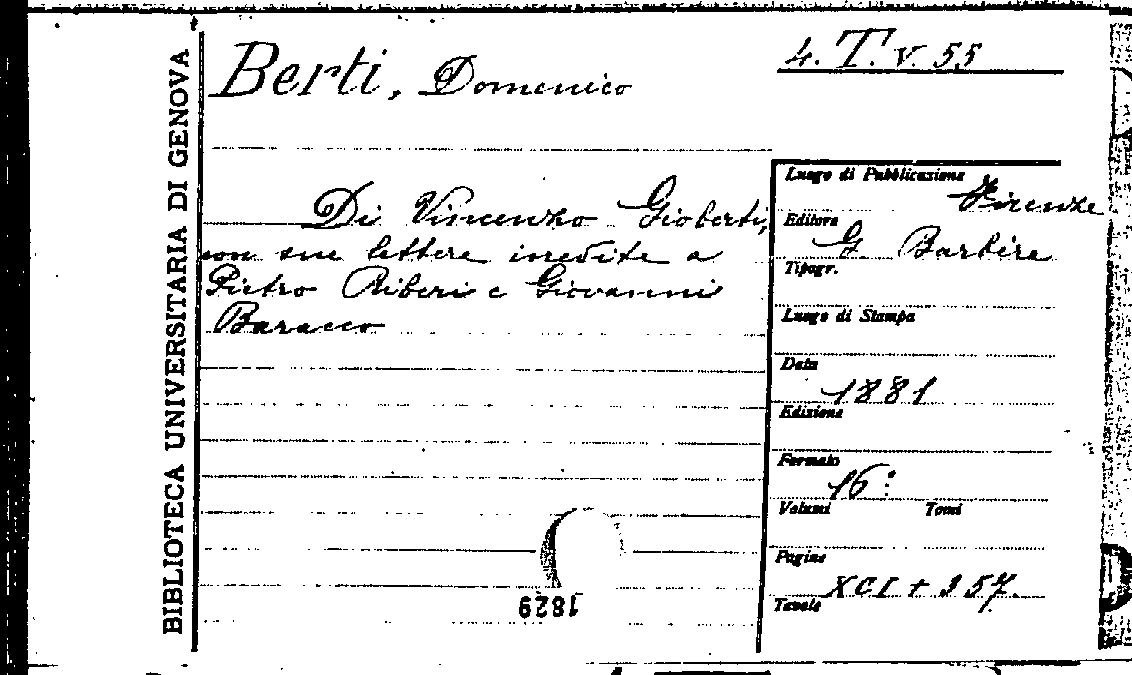 BIBLIOTECA UNIVERSITARIA DI GENOVA
Berti, Domenico
4. T. V. 55
Di Vincenzo Gioberti,
con sue lettere inedite a
Pietro Riberi e Giovanni
Baracco
Luogo di Pubblicazione
Firenze
Editore
G. Barbèra
Tipogr.
Luogo di Stampa
Data
1881
Edizione
Formato
16°
Volumi Tomi
Pagine
XCI + 357.
Tavole
1829